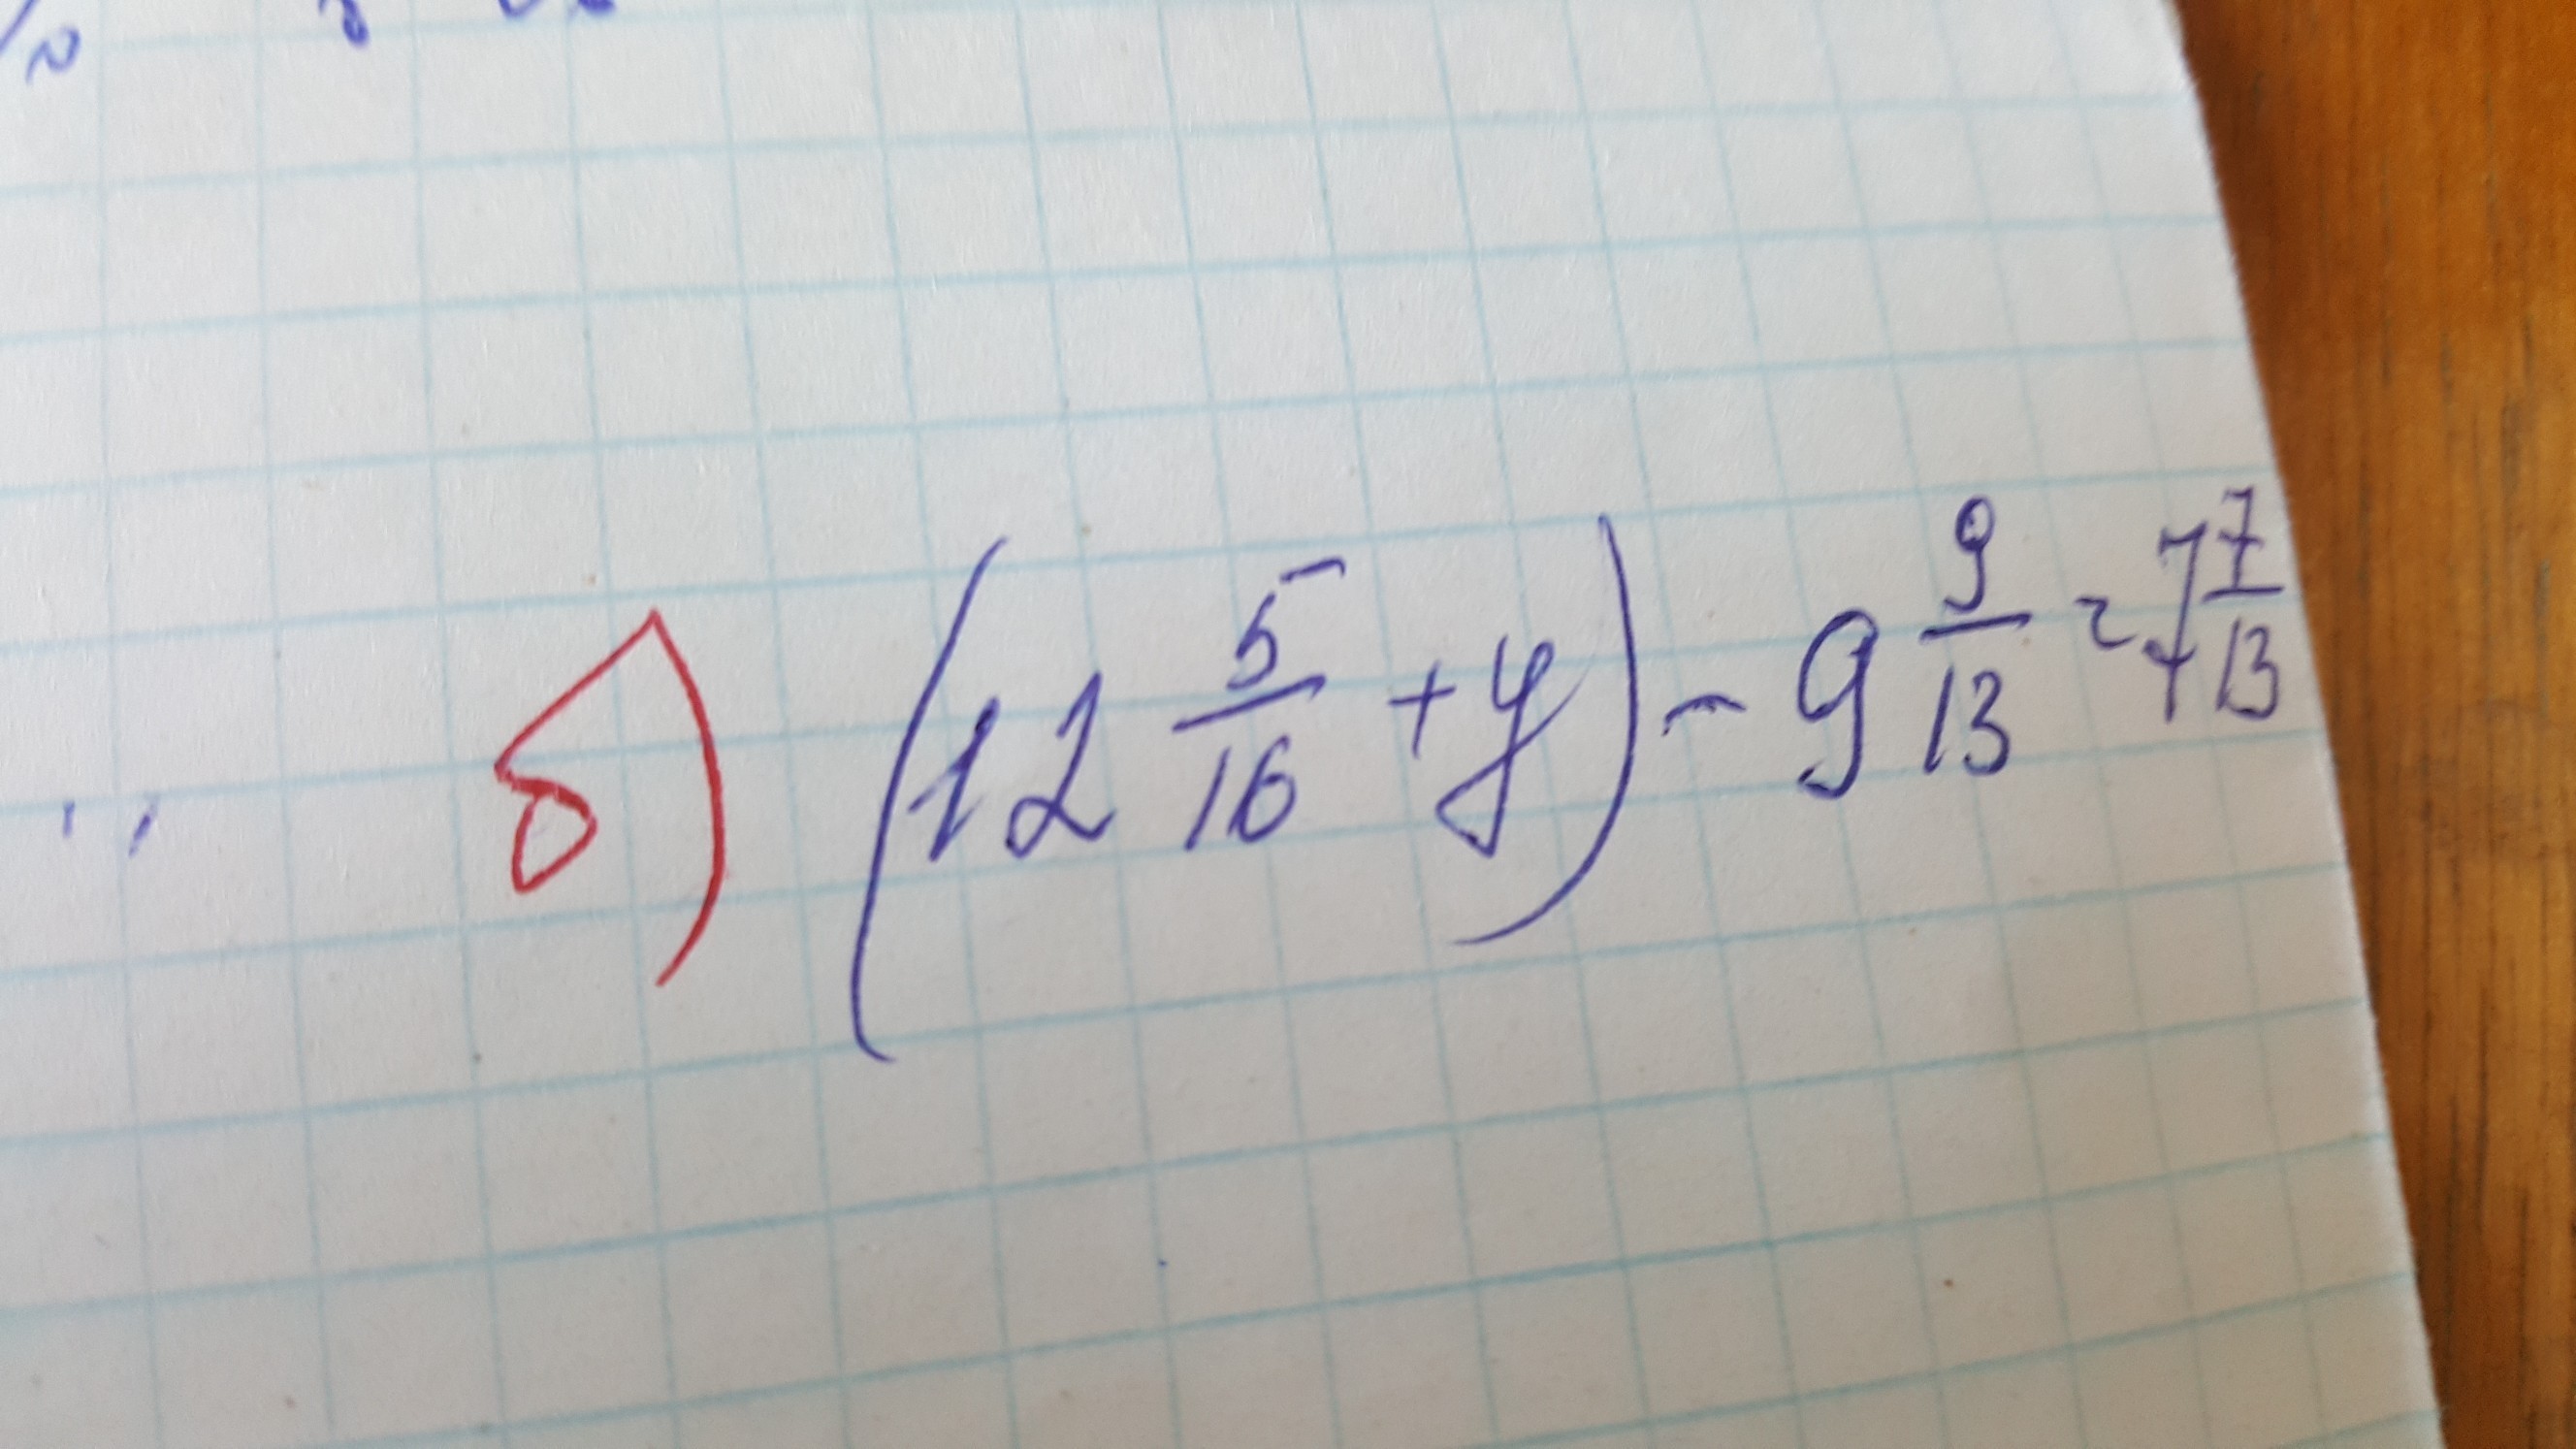 б) (12 5/16 + y) - 9 9/13 = 7 7/13